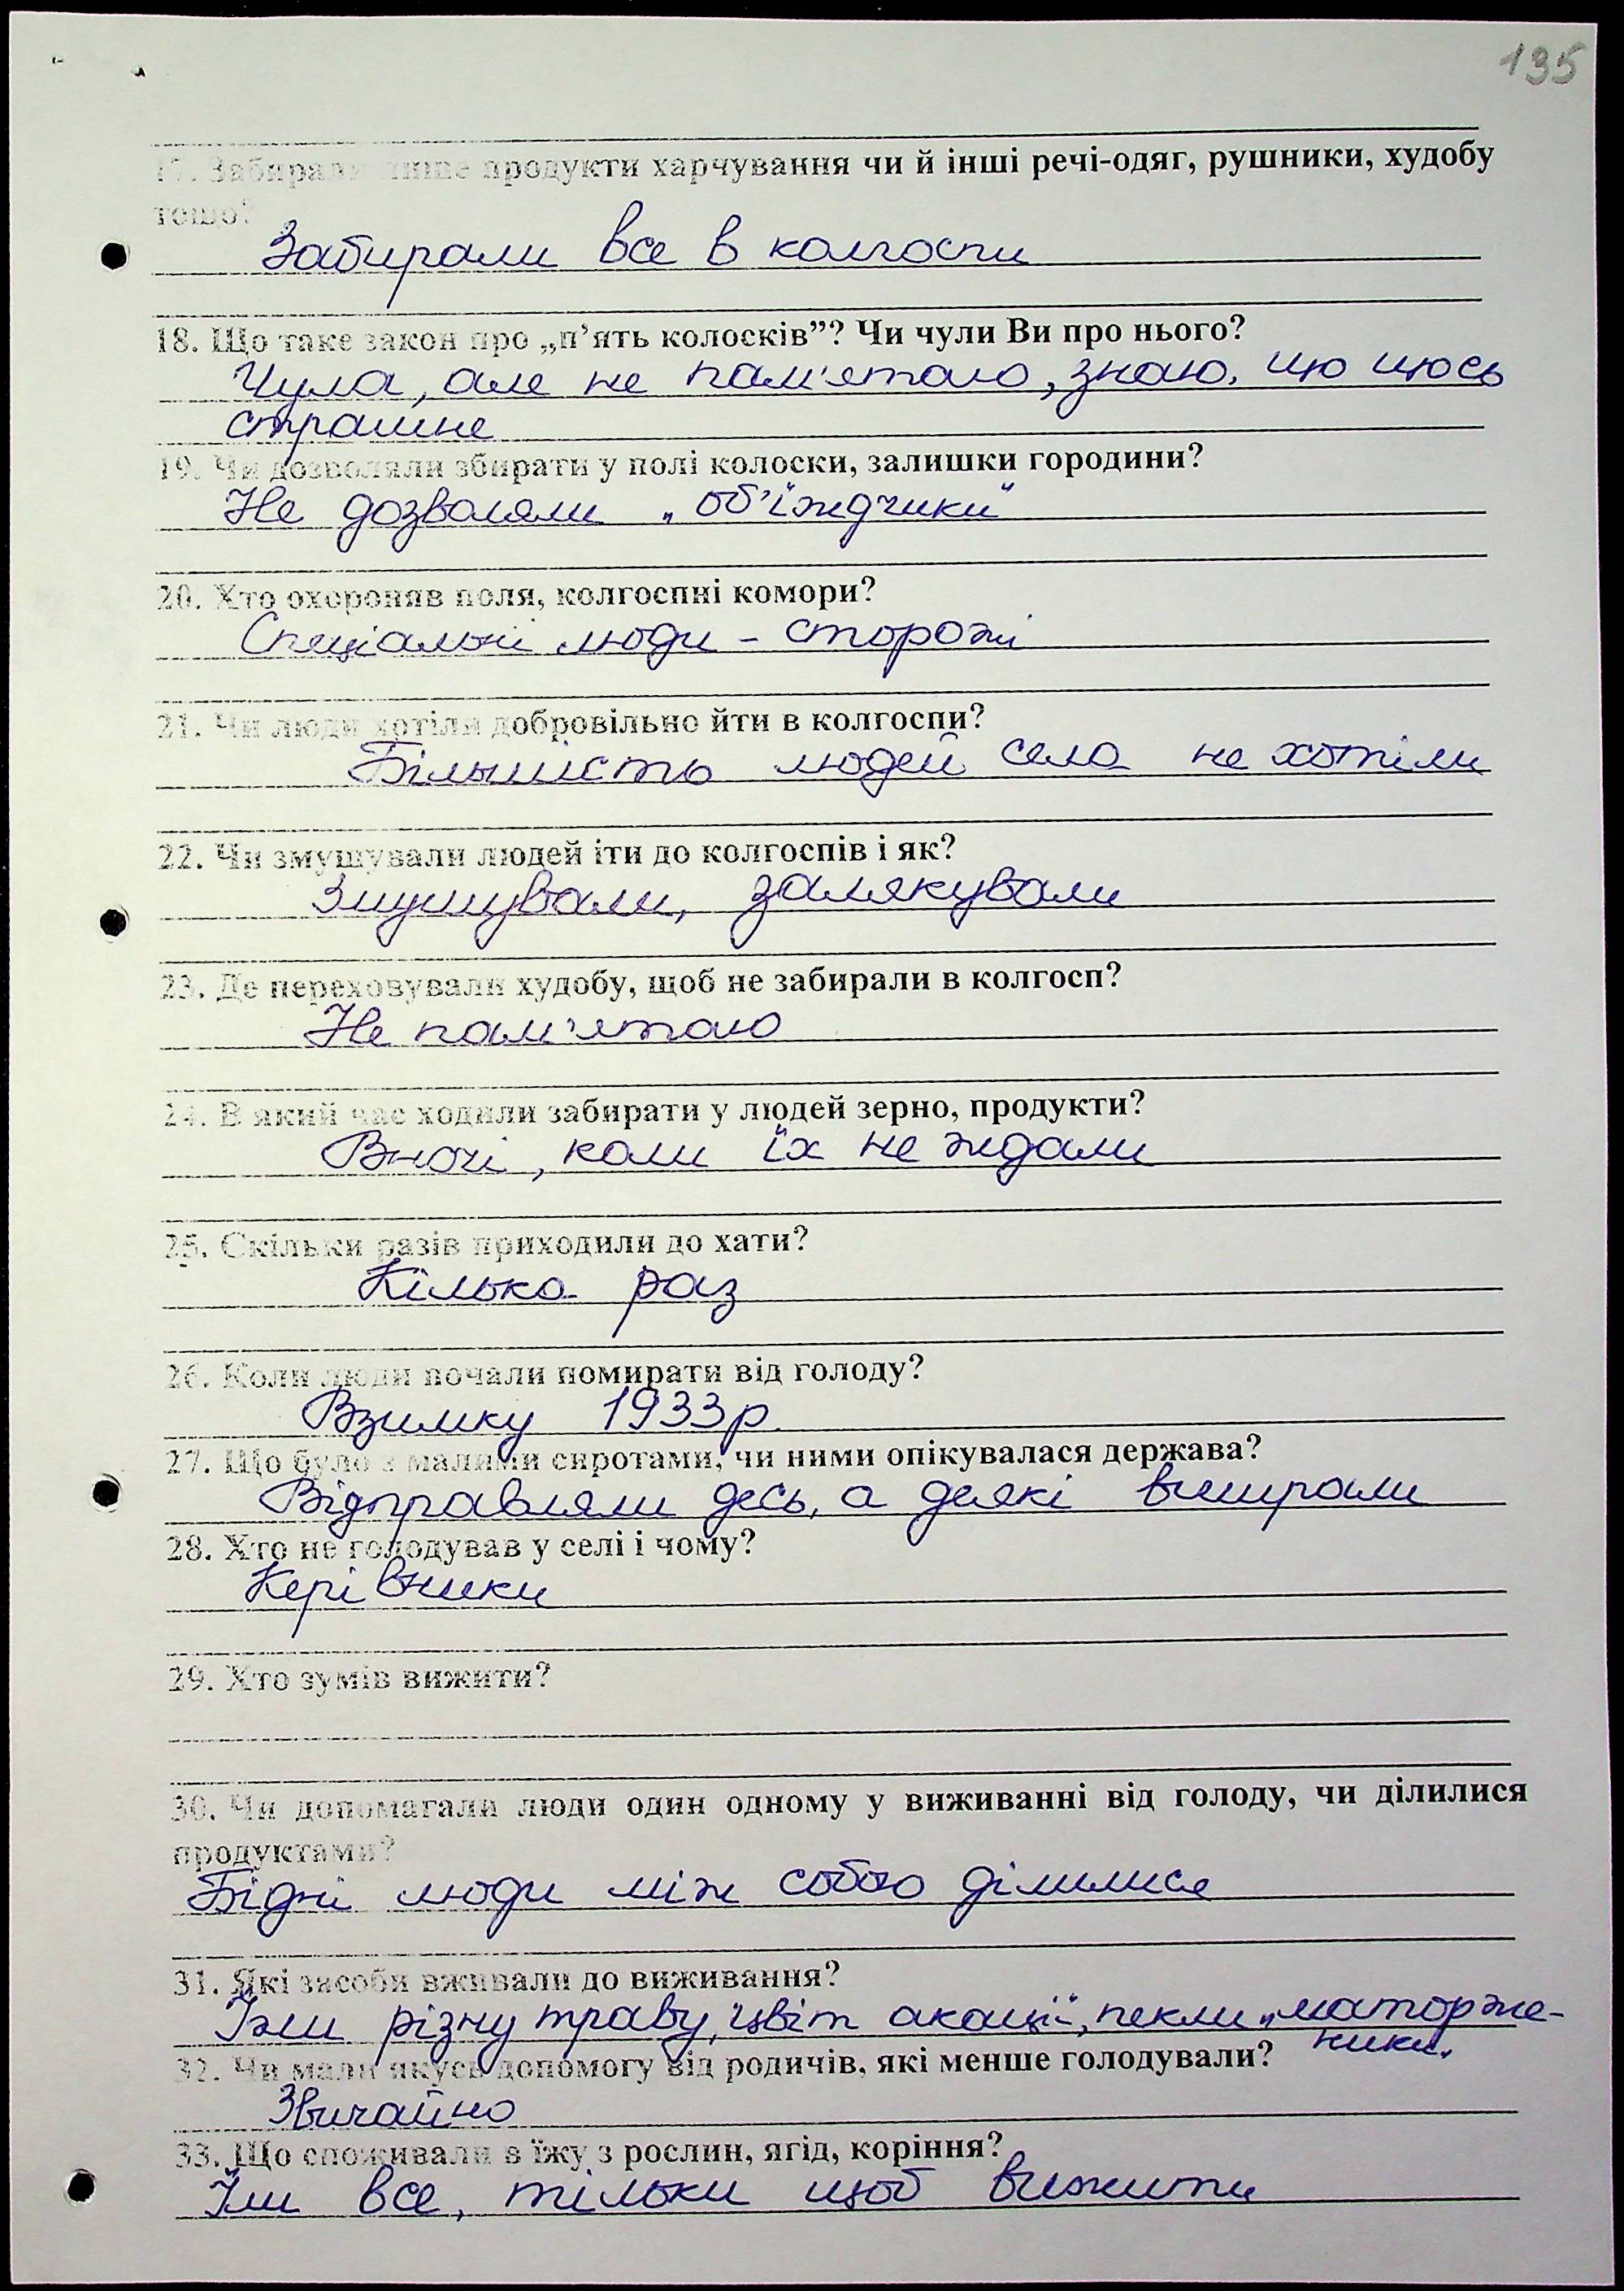 135
17. Забирали лише продукти харчування чи й інші речі-одяг, рушники, худобу
тощо?
Забирали все в колгоспи
18. Що таке закон про „п’ять колосків”? Чи чули Ви про нього?
Чула, але не пам'ятаю, знаю, що щось
страшне
19. Чи дозволяли збирати у полі колоски, залишки городини?
Не дозволяли „об'їждчики"
20. Хто охороняв поля, колгоспні комори?
Спеціальні люди - сторожі
21. Чи люди хотіли добровільно йти в колгоспи?
Більшість людей села не хотіли
22. Чи змушували людей іти до колгоспів і як?
Змушували, залякували
23. Де переховували худобу, щоб не забирали в колгосп?
Не пам'ятаю
24. В який час ходили забирати у людей зерно, продукти?
Вночі, коли їх не ждали
25. Скільки разів приходили до хати?
Кілька раз
26. Коли люди почали помирати від голоду?
Взимку 1933р.
27. Що було з малими сиротами, чи ними опікувалася держава?
Відправляли десь, а деякі вмирали
28. Хто не голодував у селі і чому?
Керівники
29. Хто зумів вижити?
30. Чи допомагали люди один одному у виживанні від голоду, чи ділилися
продуктами?
Бідні люди між собою ділилися
31. Які засоби вживали до виживання?
Їли різну траву, цвіт акації, пекли „маторже-
ники.
32. Чи мали якусь допомогу від родичів, які менше голодували?
Звичайно
33. Що споживали в їжу з рослин, ягід, коріння?
Їли все, тільки щоб вижити